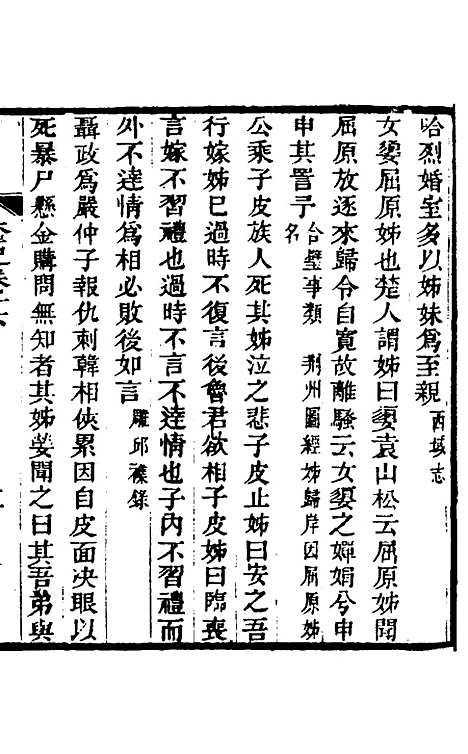 哈烈婚室多以姊妹爲至親西域志
女嬃屈原姊也楚人謂姊曰嬃袁山松云屈原姊聞
屈原放逐來歸令自寬故離騷云女嬃之嬋娟兮申
申其詈予合璧事類 荆州圖經姊歸岸因屈原姊名
公乘子皮族人死其姊泣之悲子皮止姊曰安之吾
行嫁姊巳過時不復言後魯君欲相子皮姊曰臨喪
言嫁不習禮也過時不言不逹情也子内不習禮而
外不逹情爲相必敗後如言雕邱襍錄
聶政爲嚴仲子報仇刺韓相俠累因自皮面决眼以
死暴尸懸金購問無知者其姊嫈聞之曰其吾弟與